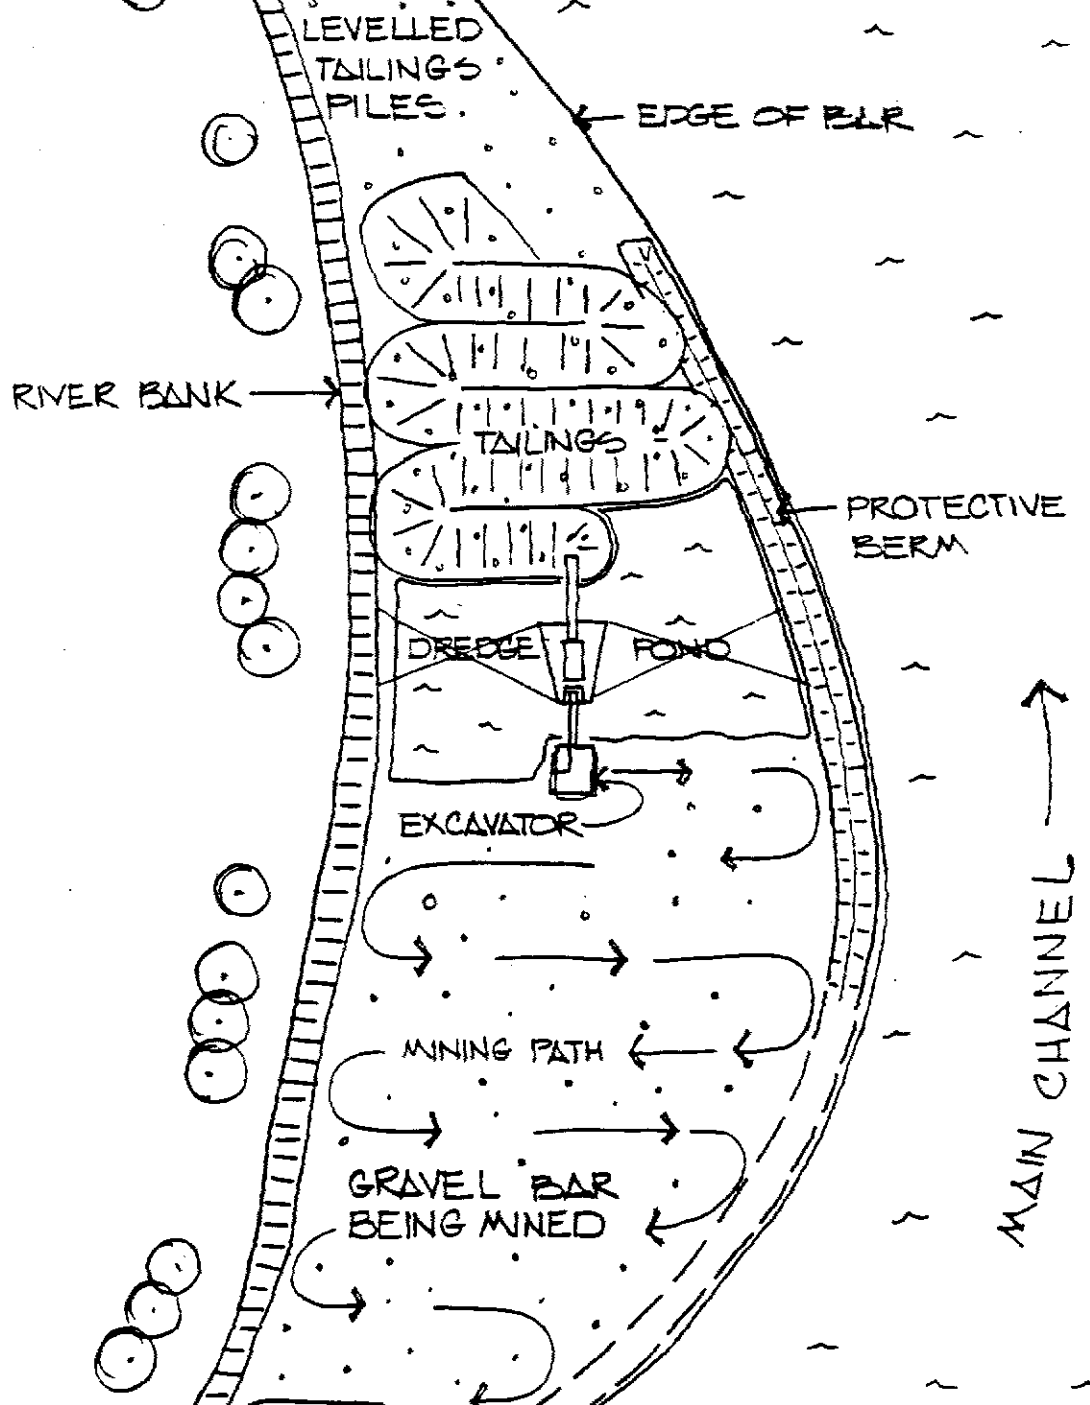 LEVELLED
TAILINGS
PILES.
EDGE OF BAR
RIVER BANK
TAILINGS
PROTECTIVE
BERM
DREDGE POND
EXCAVATOR
MINING PATH
GRAVEL BAR
BEING MINED
MAIN CHANNEL